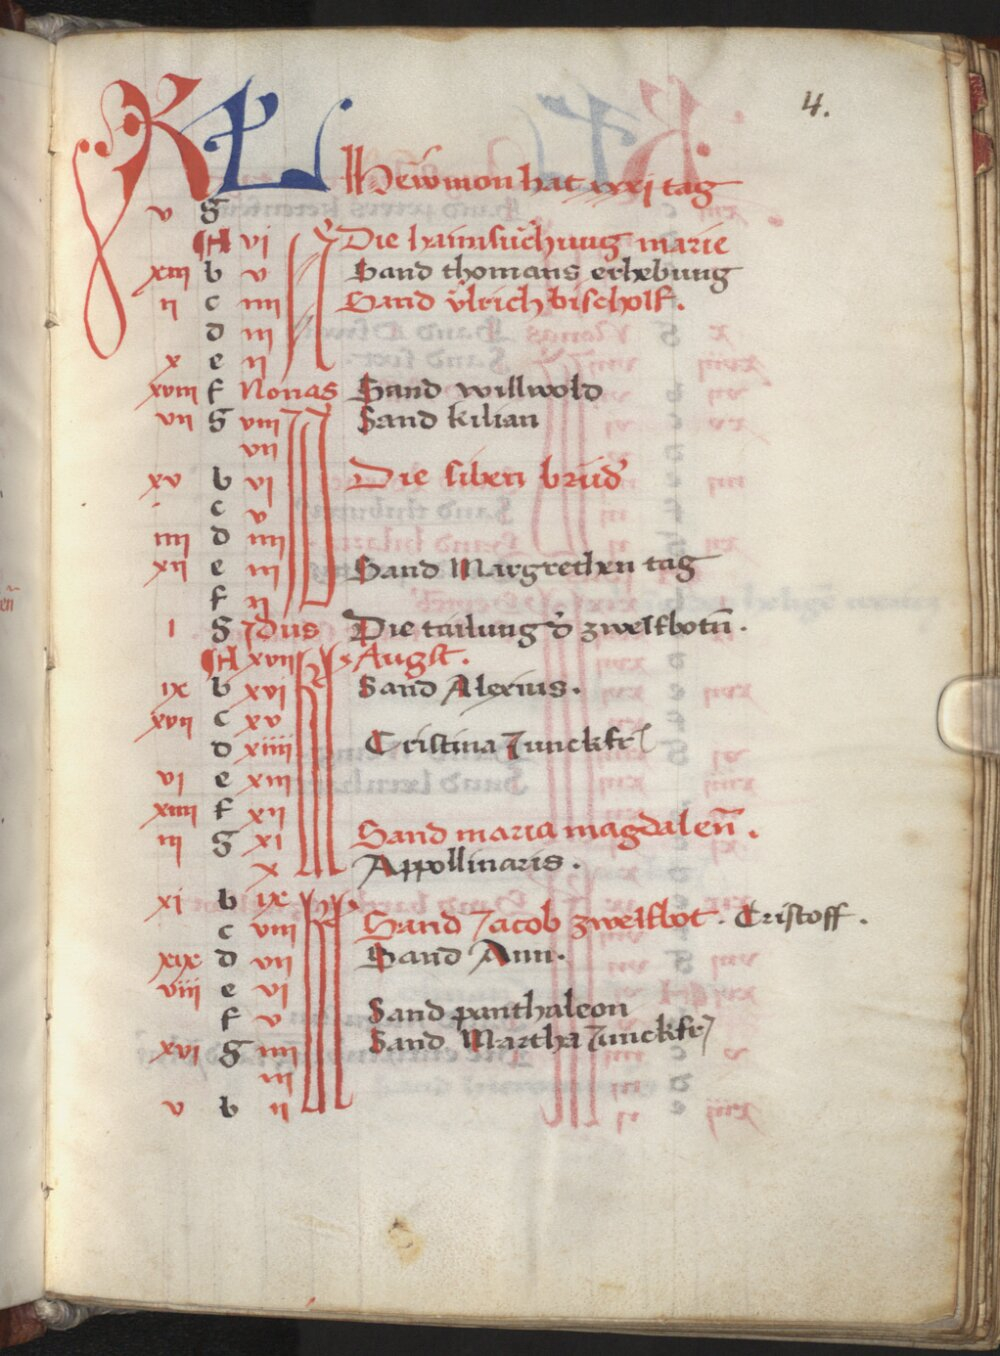 4.
KL Hewmon hat xxxj tag
v g
A vi Die haimsuchung marie
xiii b v Sand thomans erhebung
ii c iiii Sand ůlrich bischolf.
d iii
x e ii
xviii f Nonas Sand willwold
vii g viii Sand kilian
vii
xv b vi Die siben brud̾
c v
iiii d iiii
xii e iii Sand Margrethen tag
f ii
i g Idus Die tailung d̾ zwelfbotn̄.
A xvii Augst.
ix b xvi Sand Alexius.
xvii c xv
d xiiii Cristina Junckfr
vi e xiii
xiiii f xii
iii g xi Sand maria magdalen̄.
x Appollinaris.
xi b ix
c viii Sand Jacob zwelfbot. Cristoff.
xix d vii Sand Ann.
viii e vi
f v Sand panthaleon
xvi g iiii Sand Martha Junckfr
iii
v b ii